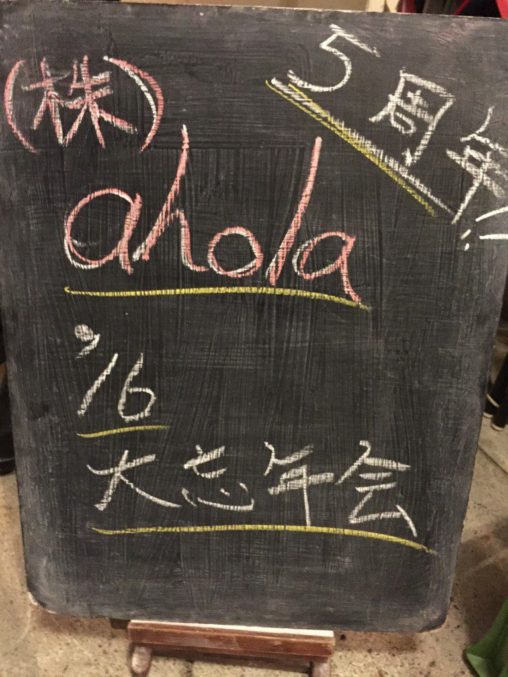 5周年!!
(株)
ahola
'16
大忘年会